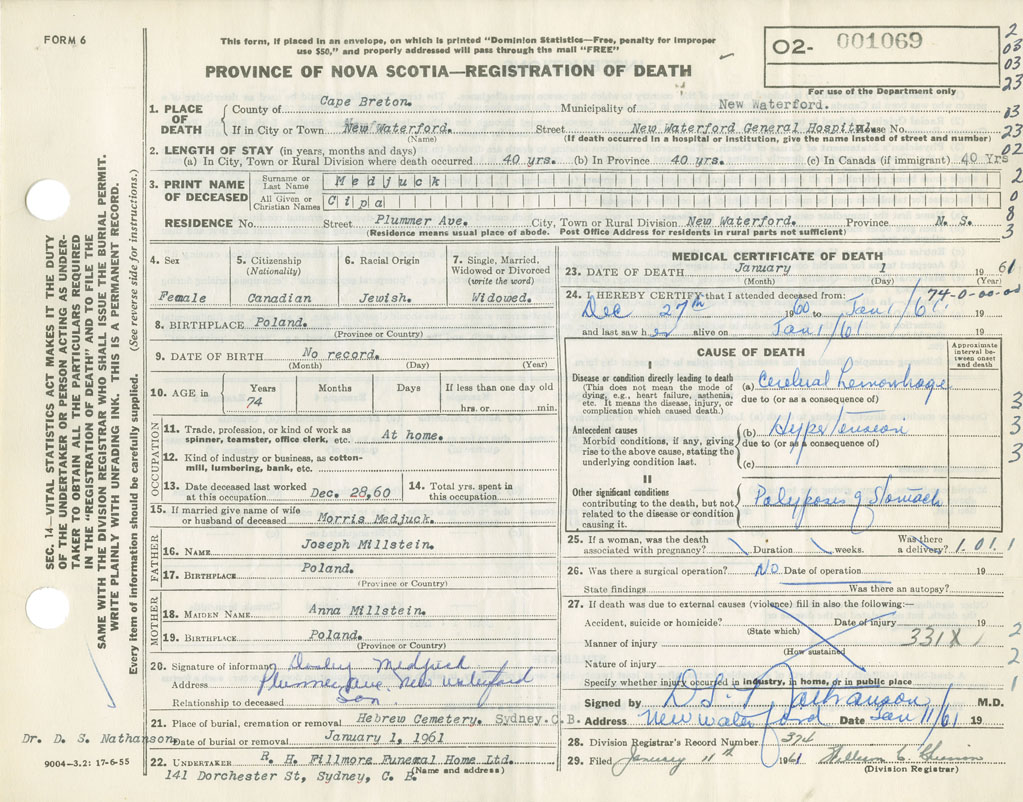 FORM 6
This form, if placed in an envelope, on which is printed "Dominion Statistics—Free, penalty for improper
use $50," and properly addressed will pass through the mail "FREE"
PROVINCE OF NOVA SCOTIA—REGISTRATION OF DEATH
02- 001069
For use of the Department only
2
03
03
23
13
23
02
2
0
8
3
SEC. 14—VITAL STATISTICS ACT MAKES IT THE DUTY
OF THE UNDERTAKER OR PERSON ACTING AS UNDER-
TAKER TO OBTAIN ALL THE PARTICULARS REQUIRED
IN THE "REGISTRATION OF DEATH" AND TO FILE THE
SAME WITH THE DIVISION REGISTRAR WHO SHALL ISSUE THE BURIAL PERMIT.
WRITE PLAINLY WITH UNFADING INK. THIS IS A PERMANENT RECORD.
Every item of information should be carefully supplied. (See reverse side for instructions.)
1. PLACE OF DEATH
County of Cape Breton. Municipality of New Waterford.
If in City or Town New Waterford. Street New Waterford General Hospital. House No.
(Name) (If death occurred in a hospital or institution, give the name instead of street and number)
2. LENGTH OF STAY (in years, months and days)
(a) In City, Town or Rural Division where death occurred 40 yrs. (b) In Province 40 yrs. (c) In Canada (if immigrant) 40 Yrs
3. PRINT NAME OF DECEASED
Surname or Last Name Medjuck
All Given or Christian Names Cipa
RESIDENCE No. Street Plummer Ave. City, Town or Rural Division New Waterford. Province N. S.
(Residence means usual place of abode. Post Office Address for residents in rural parts not sufficient)
4. Sex
Female
5. Citizenship (Nationality)
Canadian
6. Racial Origin
Jewish.
7. Single, Married, Widowed or Divorced (write the word)
Widowed.
8. BIRTHPLACE Poland.
(Province or Country)
9. DATE OF BIRTH No record.
(Month) (Day) (Year)
10. AGE in Years 74 Months Days If less than one day old hrs. or min.
OCCUPATION
11. Trade, profession, or kind of work as
spinner, teamster, office clerk, etc. At home.
12. Kind of industry or business, as cotton-
mill, lumbering, bank, etc.
13. Date deceased last worked
at this occupation Dec. 28,60
14. Total yrs. spent in
this occupation
15. If married give name of wife
or husband of deceased Morris Medjuck.
FATHER
16. NAME Joseph Millstein.
17. BIRTHPLACE Poland.
(Province or Country)
MOTHER
18. MAIDEN NAME Anna Millstein.
19. BIRTHPLACE Poland.
(Province or Country)
20. Signature of informant Medjuck
Address Plummer Ave. New Waterford
Relationship to deceased Son.
21. Place of burial, cremation or removal Hebrew Cemetery. Sydney.C.B.
Dr. D. S. Nathanson
Date of burial or removal January 1, 1961
22. UNDERTAKER R. H. Fillmore Funeral Home Ltd.
(Name and address)
141 Dorchester St, Sydney, C. B.
9004—3.2: 17-6-55
MEDICAL CERTIFICATE OF DEATH
23. DATE OF DEATH January 1 19 61
(Month) (Day) (Year)
74-0-00-00
24. I HEREBY CERTIFY that I attended deceased from:
Dec 27th 1960 to Jan 1/61 19
and last saw her alive on Jan 1/61 19
CAUSE OF DEATH
Approximate interval between onset and death
I
Disease or condition directly leading to death
(This does not mean the mode of
dying, e.g., heart failure, asthenia,
etc. It means the disease, injury, or
complication which caused death.)
(a) Cerebral hemorrhage
due to (or as a consequence of)
Antecedent causes
Morbid conditions, if any, giving
rise to the above cause, stating the
underlying condition last.
(b) Hypertension
due to (or as a consequence of)
(c)
3
3
3
II
Other significant conditions
contributing to the death, but not
related to the disease or condition
causing it.
Polyposis of Stomach
25. If a woman, was the death
associated with pregnancy? Duration weeks. Was there
a delivery? 1.01.1
26. Was there a surgical operation? No Date of operation 19
State findings Was there an autopsy?
27. If death was due to external causes (violence) fill in also the following:—
Accident, suicide or homicide? Date of injury 19
(State which)
Manner of injury 331X
(How sustained)
Nature of injury
Specify whether injury occurred in industry, in home, or in public place
2
2
1
Signed by D. S. Nathanson M.D.
Address New Waterford Date Jan 11/61 19
28. Division Registrar's Record Number 374
29. Filed January 11th 1961
(Division Registrar)